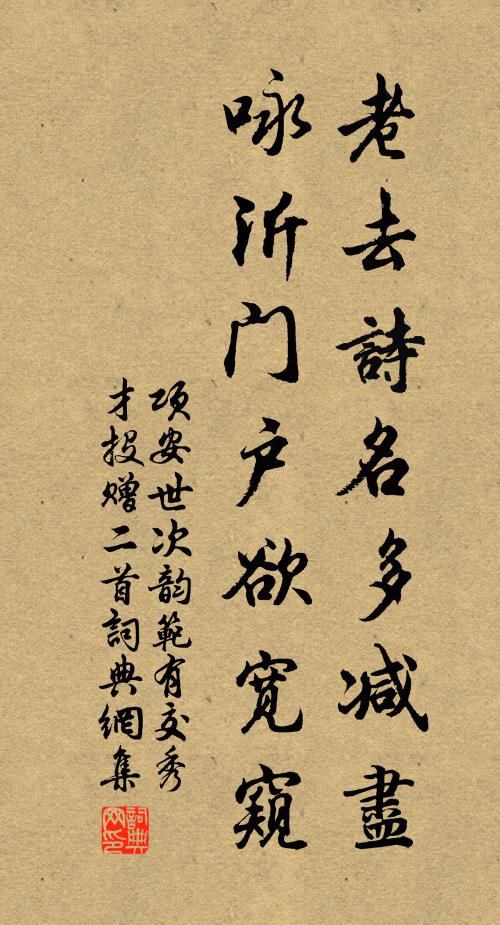 老去詩名多减盡
咏沂门户欲宽窺
项安世次韵範有交秀
才投赠二首詞典網集
詞典网印